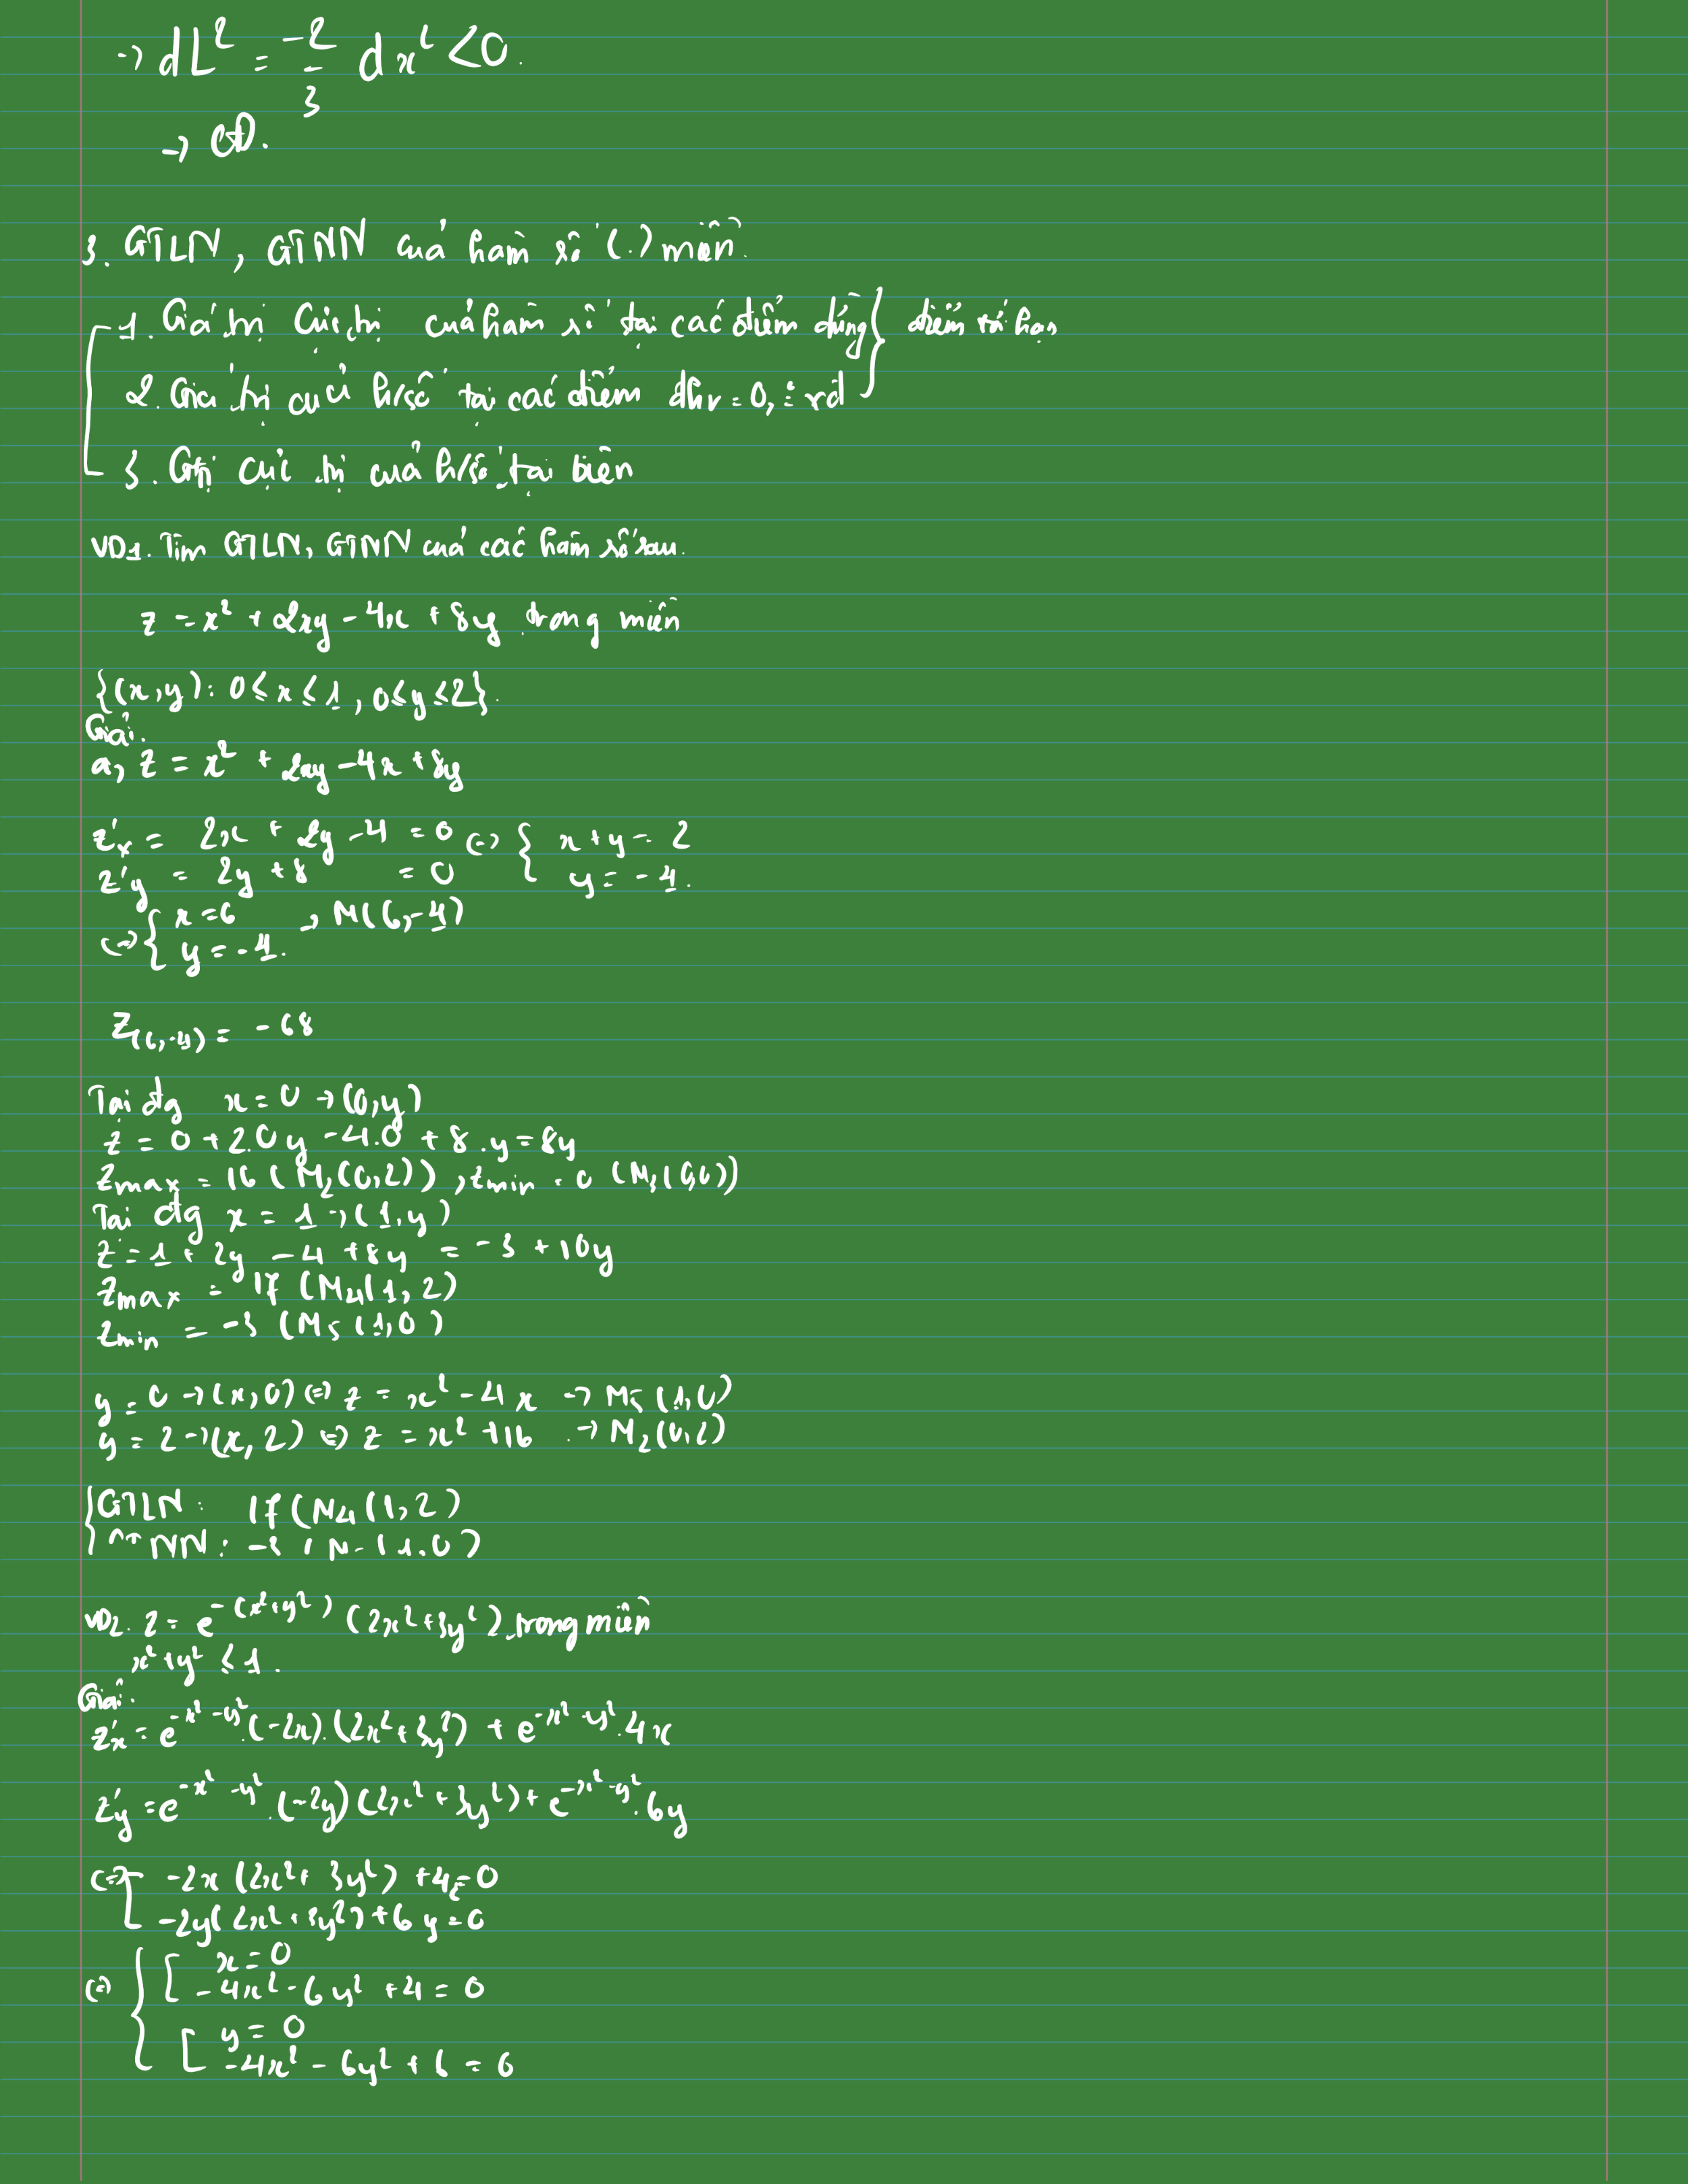 → dL² = -2/3 dx² < 0.
→ CĐ.
3. GTLN, GTNN của hàm số (.) miền.
1. Giá trị Cực trị của hàm số tại các điểm dừng } điểm tới hạn
2. Giá trị của h/số tại các điểm đhr = 0,
3. Gtrị cực trị của h/số tại biên
VD1. Tìm GTLN, GTNN của các hàm số sau.
z = x² + 2xy - 4x + 8y trong miền
{(x,y): 0 ≤ x ≤ 1, 0 ≤ y ≤ 2}.
Giải.
a, z = x² + 2xy - 4x + 8y
z'x = 2x + 2y - 4 = 0 <=> { x + y = 2
z'y = 2y + 8 = 0 y = -4.
<=> { x = 6 → M(6,-4)
y = -4.
Z(6,-4) = -68
Tại đg x = 0 → (0,y)
z = 0 + 2.0y - 4.0 + 8.y = 8y
Zmax = 16 (M2(0,2)), zmin = 0 (M3(0,0))
Tại đg x = 1 → (1,y)
z = 1 + 2y - 4 + 8y = -3 + 10y
Zmax = 17 (M4(1,2)
Zmin = -3 (M5(1,0)
y = 0 → (x,0) <=> z = x² - 4x → M5(1,0)
y = 2 → (x,2) <=> z = x² + 16 → M2(0,2)
{ GTLN: 17 (M4(1,2)
NN: -3 (1,0)
VD2. z = e^-(x²+y²) (2x²+3y²) trong miền
x² + y² ≤ 1.
Giải.
z'x = e^-x²-y².(-2x).(2x²+3y²) + e^-x²-y².4x
z'y = e^-x²-y².(-2y)(2x²+3y²) + e^-x²-y².6y
<=> [ -2x(2x²+3y²) + 4x = 0
-2y(2x²+3y²) + 6y = 0
<=> { [ x = 0
-4x² - 6y² + 4 = 0
[ y = 0
-4x² - 6y² + 6 = 0